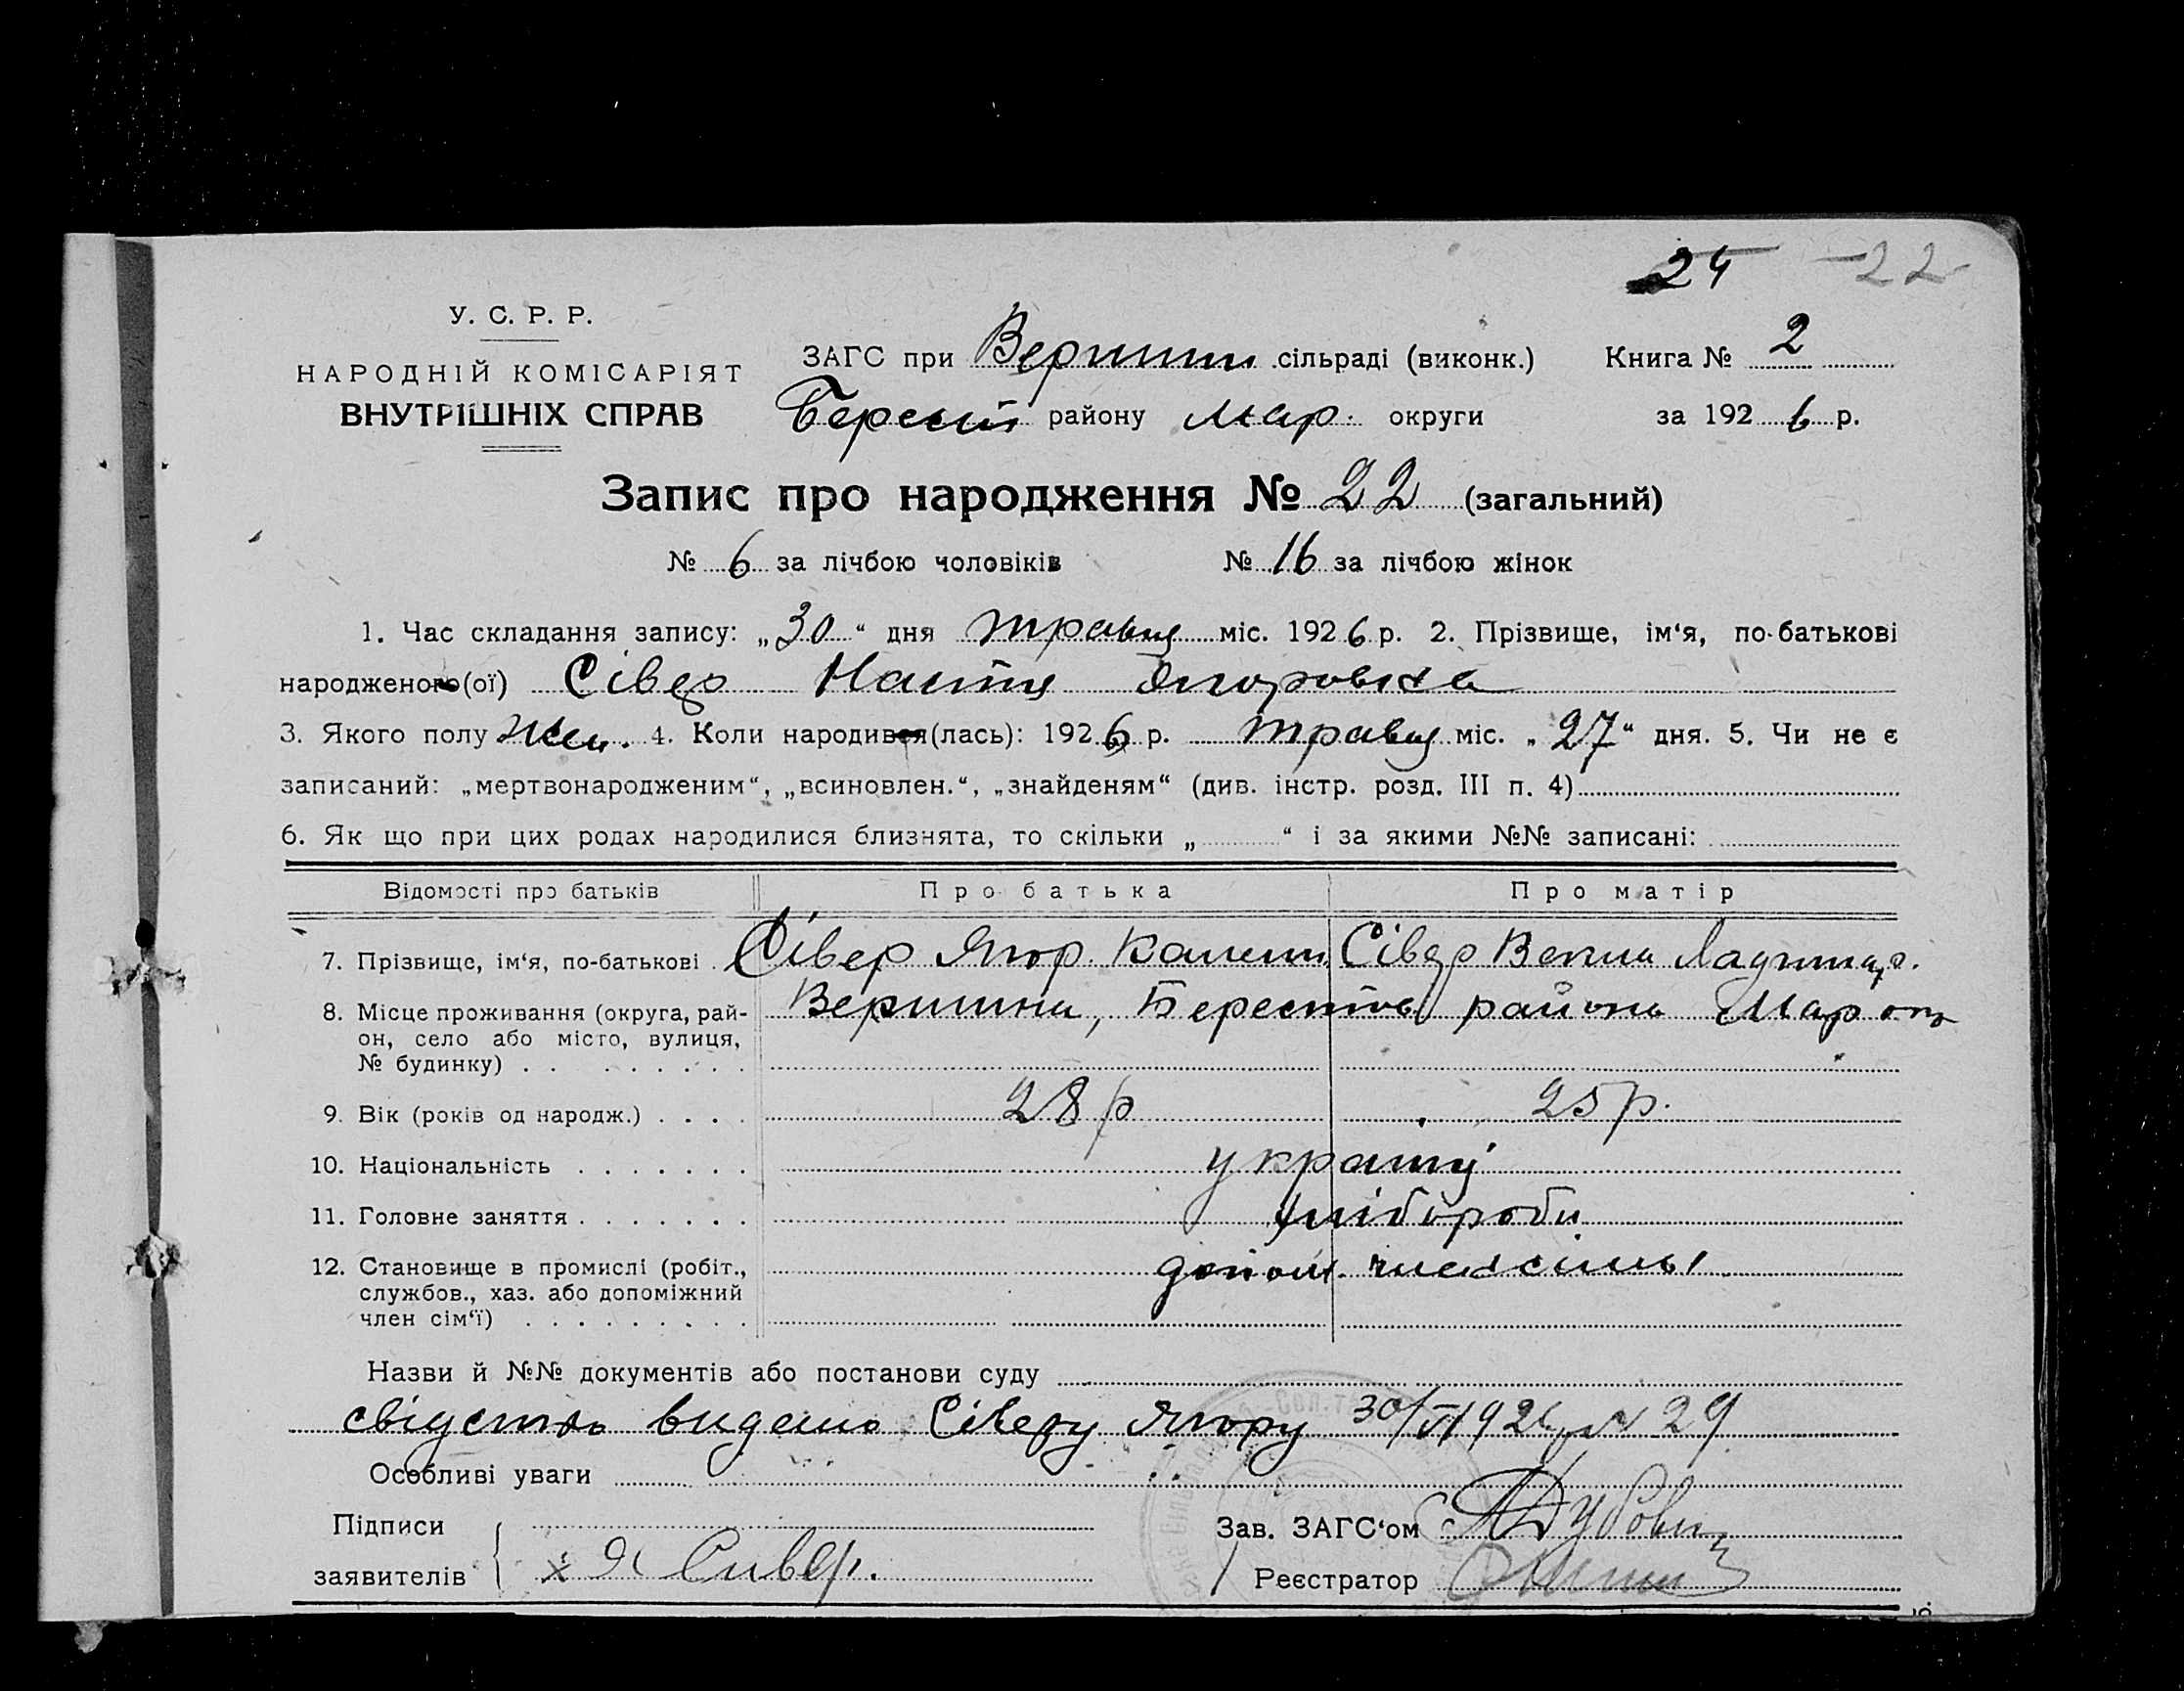 24 22
У. С. Р. Р.
НАРОДНІЙ КОМІСАРІЯТ
ВНУТРІШНІХ СПРАВ
ЗАГС при сільраді (виконк.) Книга № 2
району Мар. округи за 192 6 р.
Запис про народження № 22 (загальний)
№ 6 за лічбою чоловіків № 16 за лічбою жінок
1. Час складання запису: „30“ дня травня міс. 192 6 р. 2. Прізвище, ім‘я, по-батькові
народженого(ої) Сівер Настя Ягоровна
3. Якого полу жін. 4. Коли народився(лась): 192 6 р. травня міс. „27“ дня. 5. Чи не є
записаний: „мертвонародженим“, „всиновлен.“, „знайденям“ (див. інстр. розд. III п. 4)
6. Як що при цих родах народилися близнята, то скільки „ “ і за якими №№ записані:
Відомості про батьків Про батька Про матір
7. Прізвище, ім‘я, по-батькові Сівер Ягор Сівер
8. Місце проживання (округа, рай-
он, село або місто, вулиця,
№ будинку)
Вершина, району Мар
9. Вік (років од народж.) 28 р 25 р.
10. Національність
11. Головне заняття хлібороби
12. Становище в промислі (робіт.,
службов., хаз. або допоміжний
член сім‘ї)
допом.
Назви й №№ документів або постанови суду
видано Сіверу Ягору № 29
Особливі уваги
Підписи
заявителів х Я Сивер.
Зав. ЗАГС‘ом
Реєстратор